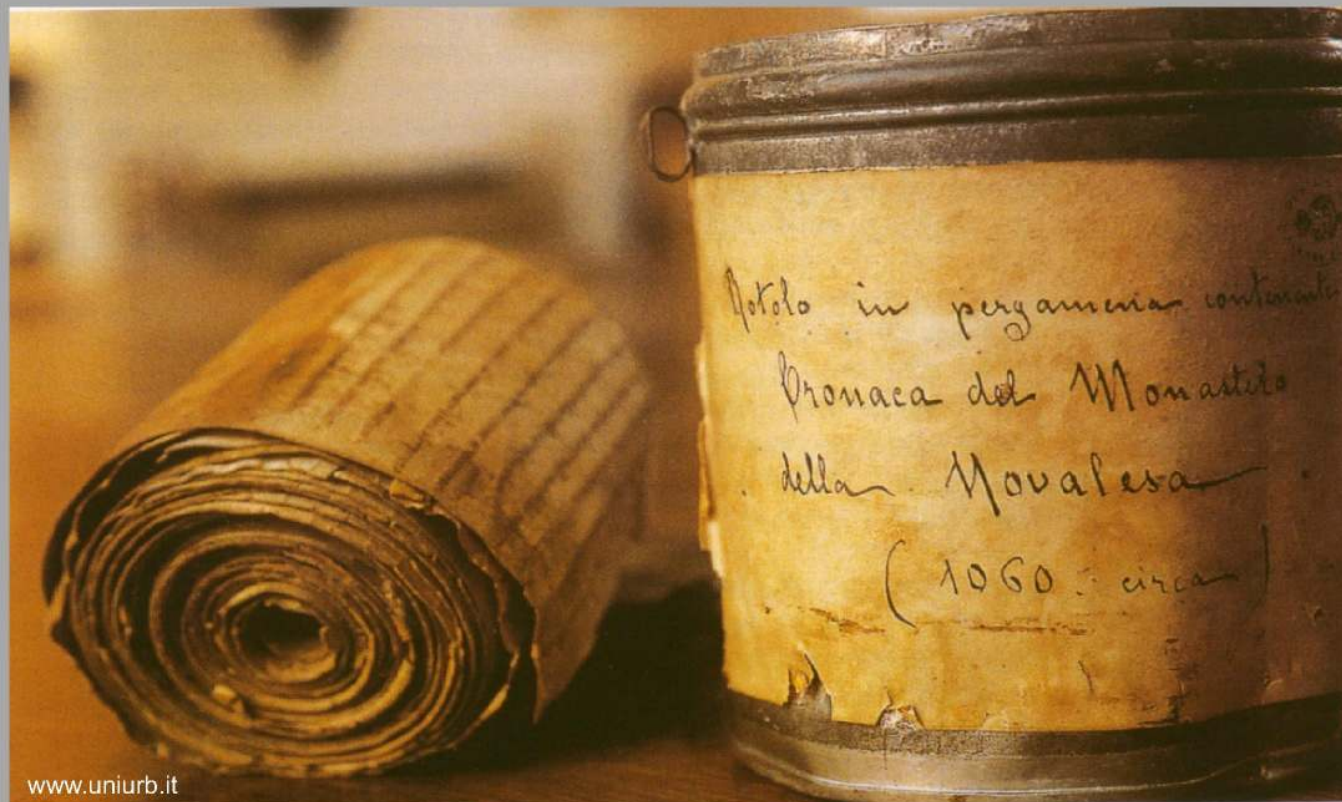 Rotolo in pergamena contenente
Cronaca del Monastero
della Novalesa
(1060 circa)
www.uniurb.it